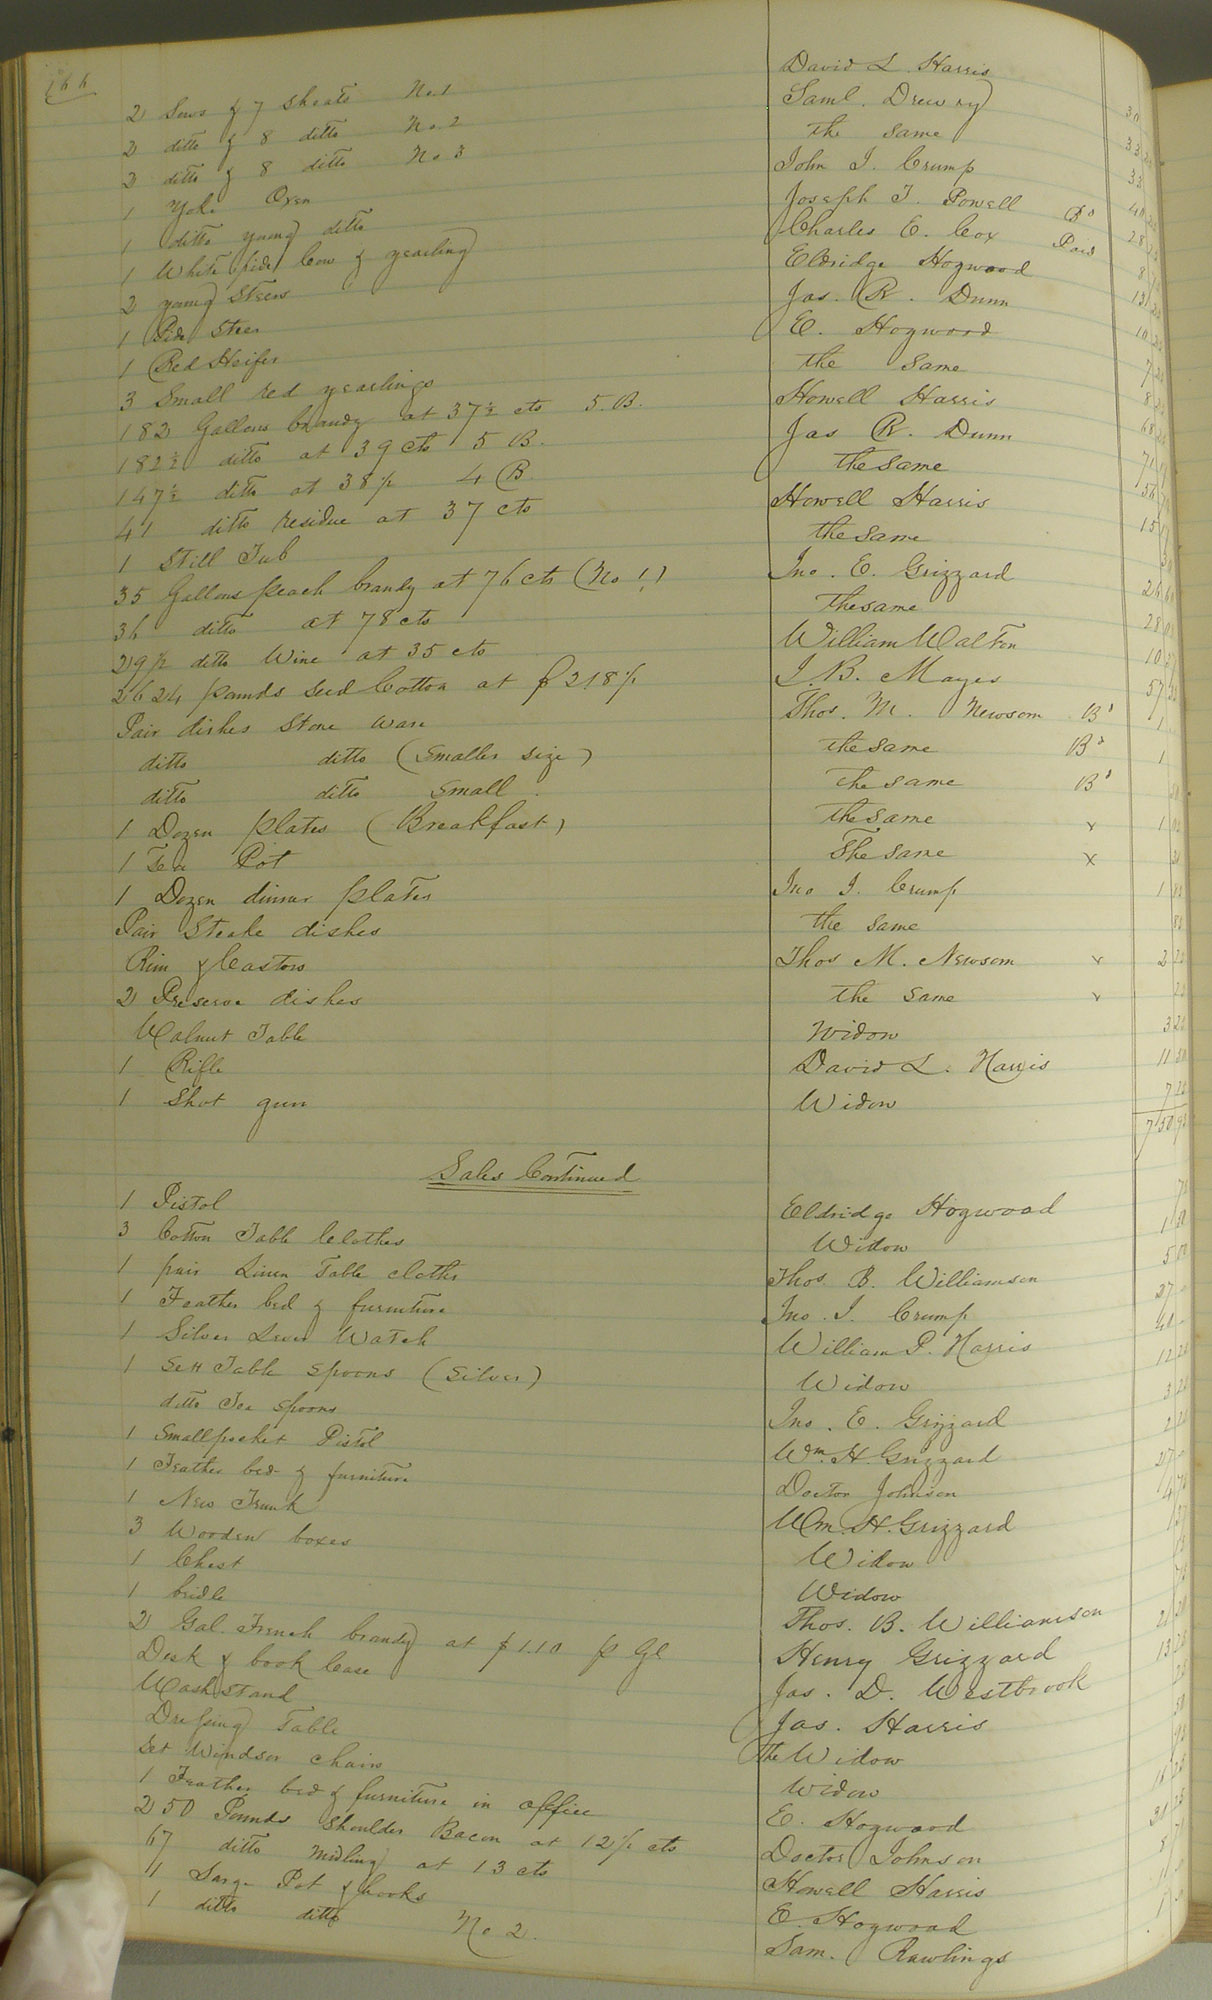 166
2 Sows & 7 Shoats No.1 David L. Harris 30
2 ditto & 8 ditto No.2 Saml. Drewry
2 ditto & 8 ditto No 3 the same
1 Yoke Oxen John J. Crump
1 ditto young ditto Joseph T. Powell Bo
1 White pide Cow & yearling Charles C. Cox Paid
2 young Steers Eldridge Hogwood
1 Pide Steer Jas. R. Dunn
1 Red Heifer E. Hogwood
3 Small red yearlings the same
182 Gallons brandy at 37½ cts 5.B. Howell Harris
182½ ditto at 39 cts 5 B. Jas R. Dunn
147½ ditto at 38 ½ 4 B the same
41 ditto residue at 37 cts Howell Harris
1 Still Tub the same
35 Gallons peach brandy at 76 cts (No 1) Jno. E. Grizzard
36 ditto at 78 cts the same
29½ ditto Wine at 35 cts William Walton
2624 pounds seed Cotton at $2 18½ J. B. Mayes
Pair dishes Stone Ware Thos. M. Newsom Bo 1
ditto ditto (Smaller size) the same Bo 1
ditto ditto Small the same Bo
1 Dozen plates (Breakfast) the same x 1
1 Tea Pot The same x
1 Dozen dinnar plates Jno J. Crump 1
Pair Steake dishes the same
Rim & Castors Thos M. Newsom x 2
2 Preserve dishes the same x
Walnut Table Widow 3
1 Rifle David L. Harris 11
1 Shot gun Widow 7
Sales Continued
1 Pistol Eldridge Hogwood
3 Cotton Table Clothes Widow
1 pair Linen Table cloths Thos. B. Williamson 5 00
1 Feather bed & furniture Jno. J. Crump
1 Silver Lever Watch William P. Harris
1 Sett Table Spoons (Silver) Widow 12
ditto Tea Spoons Jno. E. Grizzard
1 Small pocket Pistol Wm. H Grizzard
1 Feather bed & furniture Doctor Johnson
1 New Trunk Wm. H. Grizzard
3 Wooden boxes Widow
1 Chest Widow
1 bridle Thos. B. Williamson
2 Gal. French brandy at $1.10 p Gl Henry Grizzard
Desk & book Case Jas. D. Westbrook
Wash stand Jas. Harris
Dressing Table the Widow
Set Windsor chairs Widow
1 Feather bed & furniture in office E. Hogwood
250 Pounds Shoulder Bacon at 12½ cts Doctor Johnson
67 ditto midling at 13 cts Howell Harris
1 Large Pot & hooks E. Hogwood
1 ditto ditto No 2. Sam. Rawlings